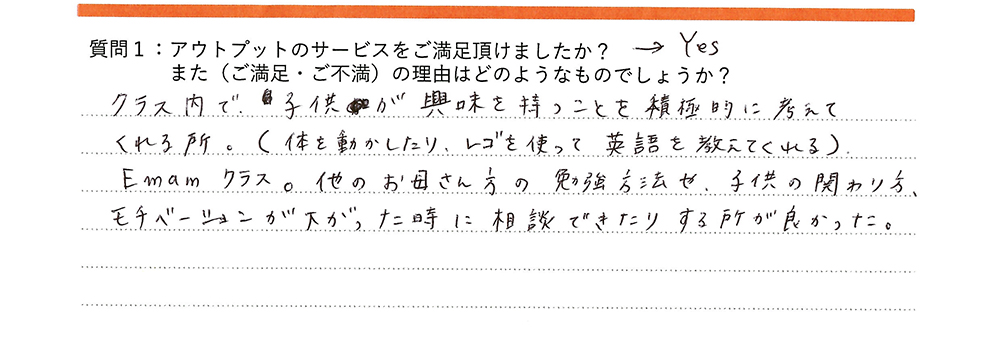 質問1：アウトプットのサービスをご満足頂けましたか？ → Yes
また（ご満足・ご不満）の理由はどのようなものでしょうか？
クラス内で、子供が興味を持つことを積極的に考えて
くれる所。(体を動かしたり、レゴを使って英語を教えてくれる)。
Emamクラス。他のお母さん方の勉強方法や、子供の関わり方、
モチベーションが下がった時に相談できたりする所が良かった。